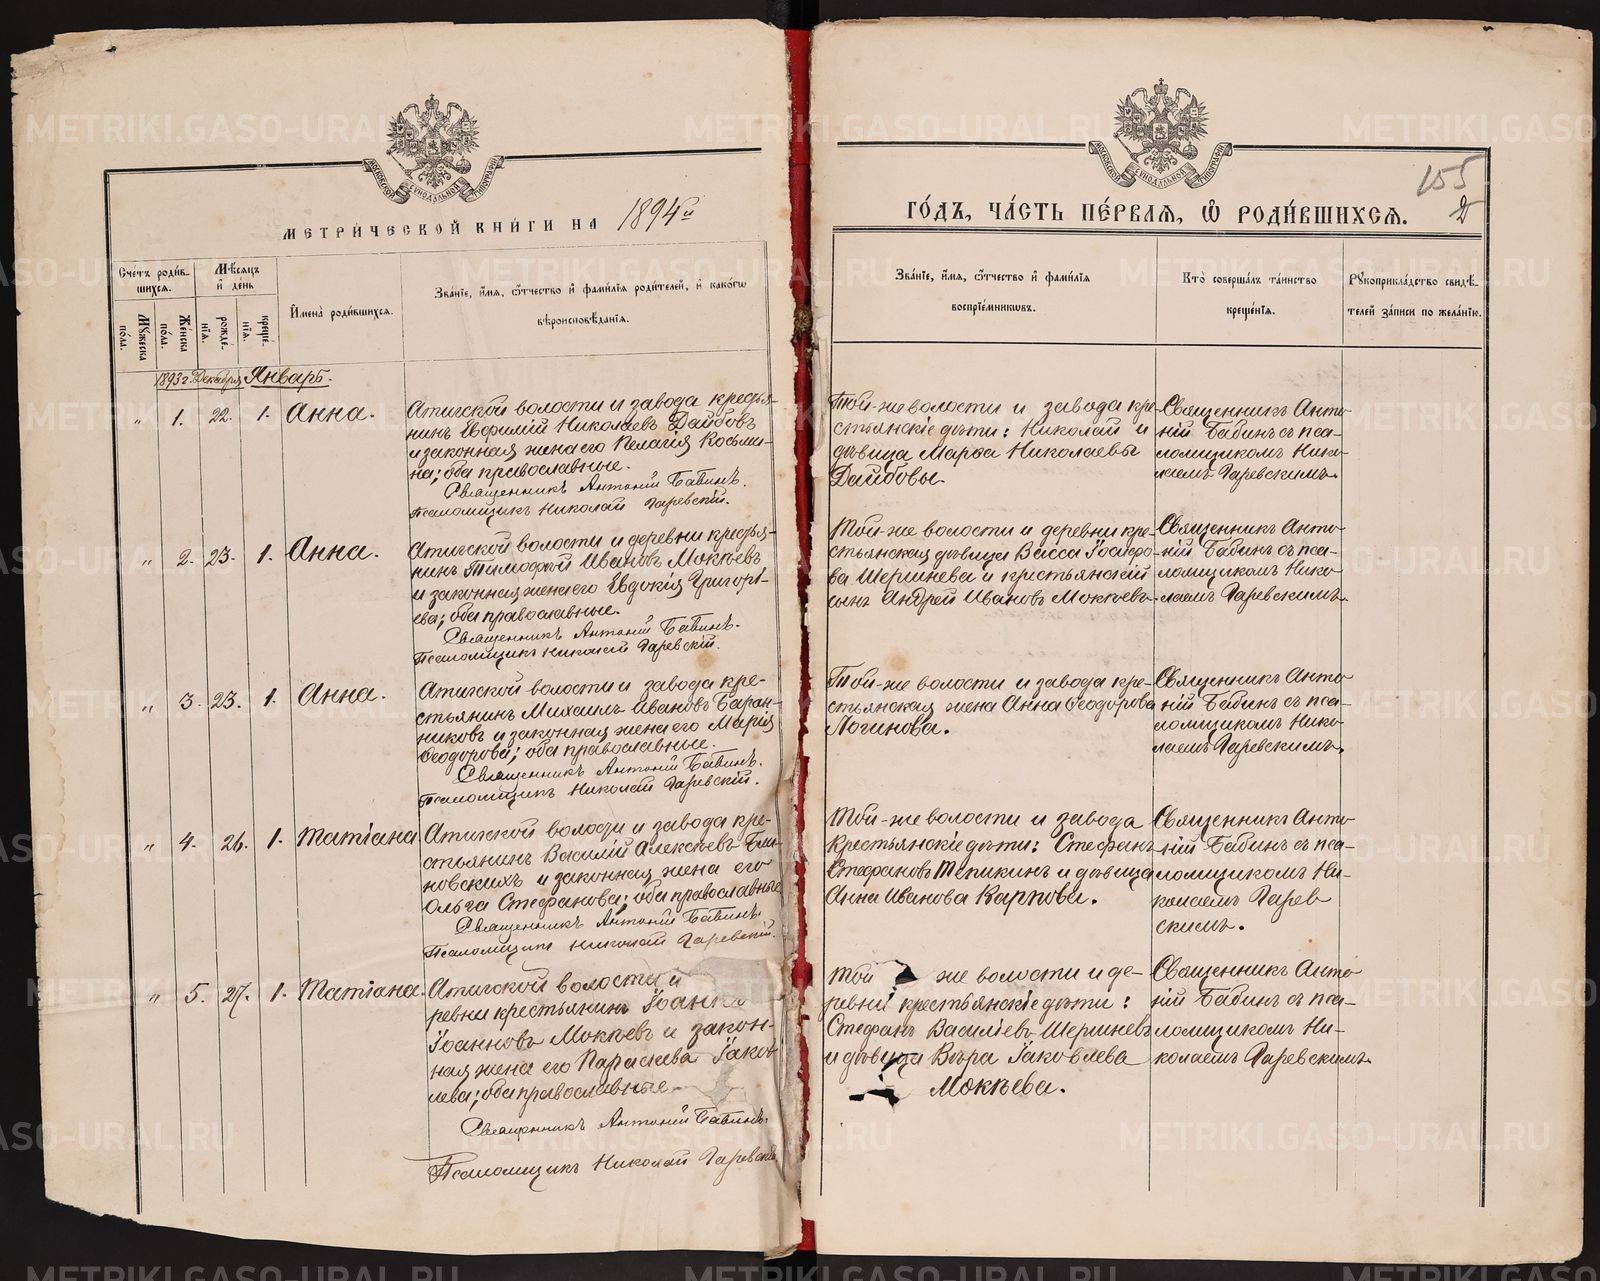 МЕТРИЧЕСКОЙ КНИГИ НА 1894й
ГОДЪ, ЧАСТЬ ПЕРВАЯ, Ѡ РОДИВШИХСЯ.
155
2
Счетъ родив-
шихся.
Мѣсяцъ
и день
Имена родившихся.
Званіе, имя, ѻтчество и фамилія родителей, и какогѡ
вѣроисповѣданія.
Мужеска
пола.
Женска
пола.
рожде-
нія.
креще-
нія.
Званіе, имя, ѻтчество и фамилія
воспріемниковъ.
Кто совершалъ таинство
крещенія.
Рукоприкладство свидѣ-
телей записи по желанію.
1893 г. Декабря Январь.
" 1. 22. 1. Анна.
Атигской волости и завода кресть-
янинъ Евфимій Николаевъ Дайбовъ
и законная жена его Пелагія Косьми-
на; оба православные.
Священникъ Антоній Бабинъ.
Псаломщикъ Николай Гаревскій.
Той-же волости и завода кре-
стьянскіе дѣти: Николай и
дѣвица Марѳа Николаевы
Дайбовы.
Священникъ Анто-
ній Бабинъ съ пса-
ломщикомъ Нико-
лаемъ Гаревскимъ.
" 2. 23. 1. Анна.
Атигской волости и деревни крестья-
нинъ Тимофей Ивановъ Мокѣевъ
и законная жена его Евдокія Григорь-
ева; оба православные.
Священникъ Антоній Бабинъ.
Псаломщикъ Николай Гаревскій.
Той-же волости и деревни кре-
стьянская дѣвица Васса Іосифо-
ва Шершнева и крестьянскій
сынъ Андрей Ивановъ Мокѣевъ.
Священникъ Анто-
ній Бабинъ съ пса-
ломщикомъ Нико-
лаемъ Гаревскимъ.
" 3. 23. 1. Анна.
Атигской волости и завода кре-
стьянинъ Михаилъ Ивановъ Баран-
никовъ и законная жена его Марія
Ѳеодорова; оба православные.
Священникъ Антоній Бабинъ.
Псаломщикъ Николай Гаревскій.
Той-же волости и завода кре-
стьянская жена Анна Ѳеодорова
Логинова.
Священникъ Анто-
ній Бабинъ съ пса-
ломщикомъ Нико-
лаемъ Гаревскимъ.
" 4. 26. 1. Татіана
Атигской волости и завода кре-
стьянинъ Василій Алексѣевъ Бли-
новскихъ и законная жена его
Ольга Стефанова; оба православные
Священникъ Антоній Бабинъ.
Псаломщикъ Николай Гаревскій.
Той-же волости и завода
крестьянскіе дѣти: Стефанъ
Стефановъ Тепикинъ и дѣвица
Анна Иванова Карпова.
Священникъ Анто-
ній Бабинъ съ пса-
ломщикомъ Ни-
колаемъ Гарев
скимъ.
" 5. 27. 1. Татіана.
Атигской волости и
ревни крестьянинъ Іоаннъ
Іоанновъ Мокѣевъ и закон-
ная жена его Параскева Іаков-
лева; оба православные
Священникъ Антоній Бабинъ.
Псаломщикъ Николай Гаревскій
Той же волости и де-
ревни крестьянскіе дѣти:
Стефанъ Василіевъ Шершневъ
и дѣвица Вѣра Іаковлева
Мокѣева.
Священникъ Анто-
ній Бабинъ съ пса-
ломщикомъ Ни-
колаемъ Гаревскимъ.
METRIKI.GASO-URAL.RU